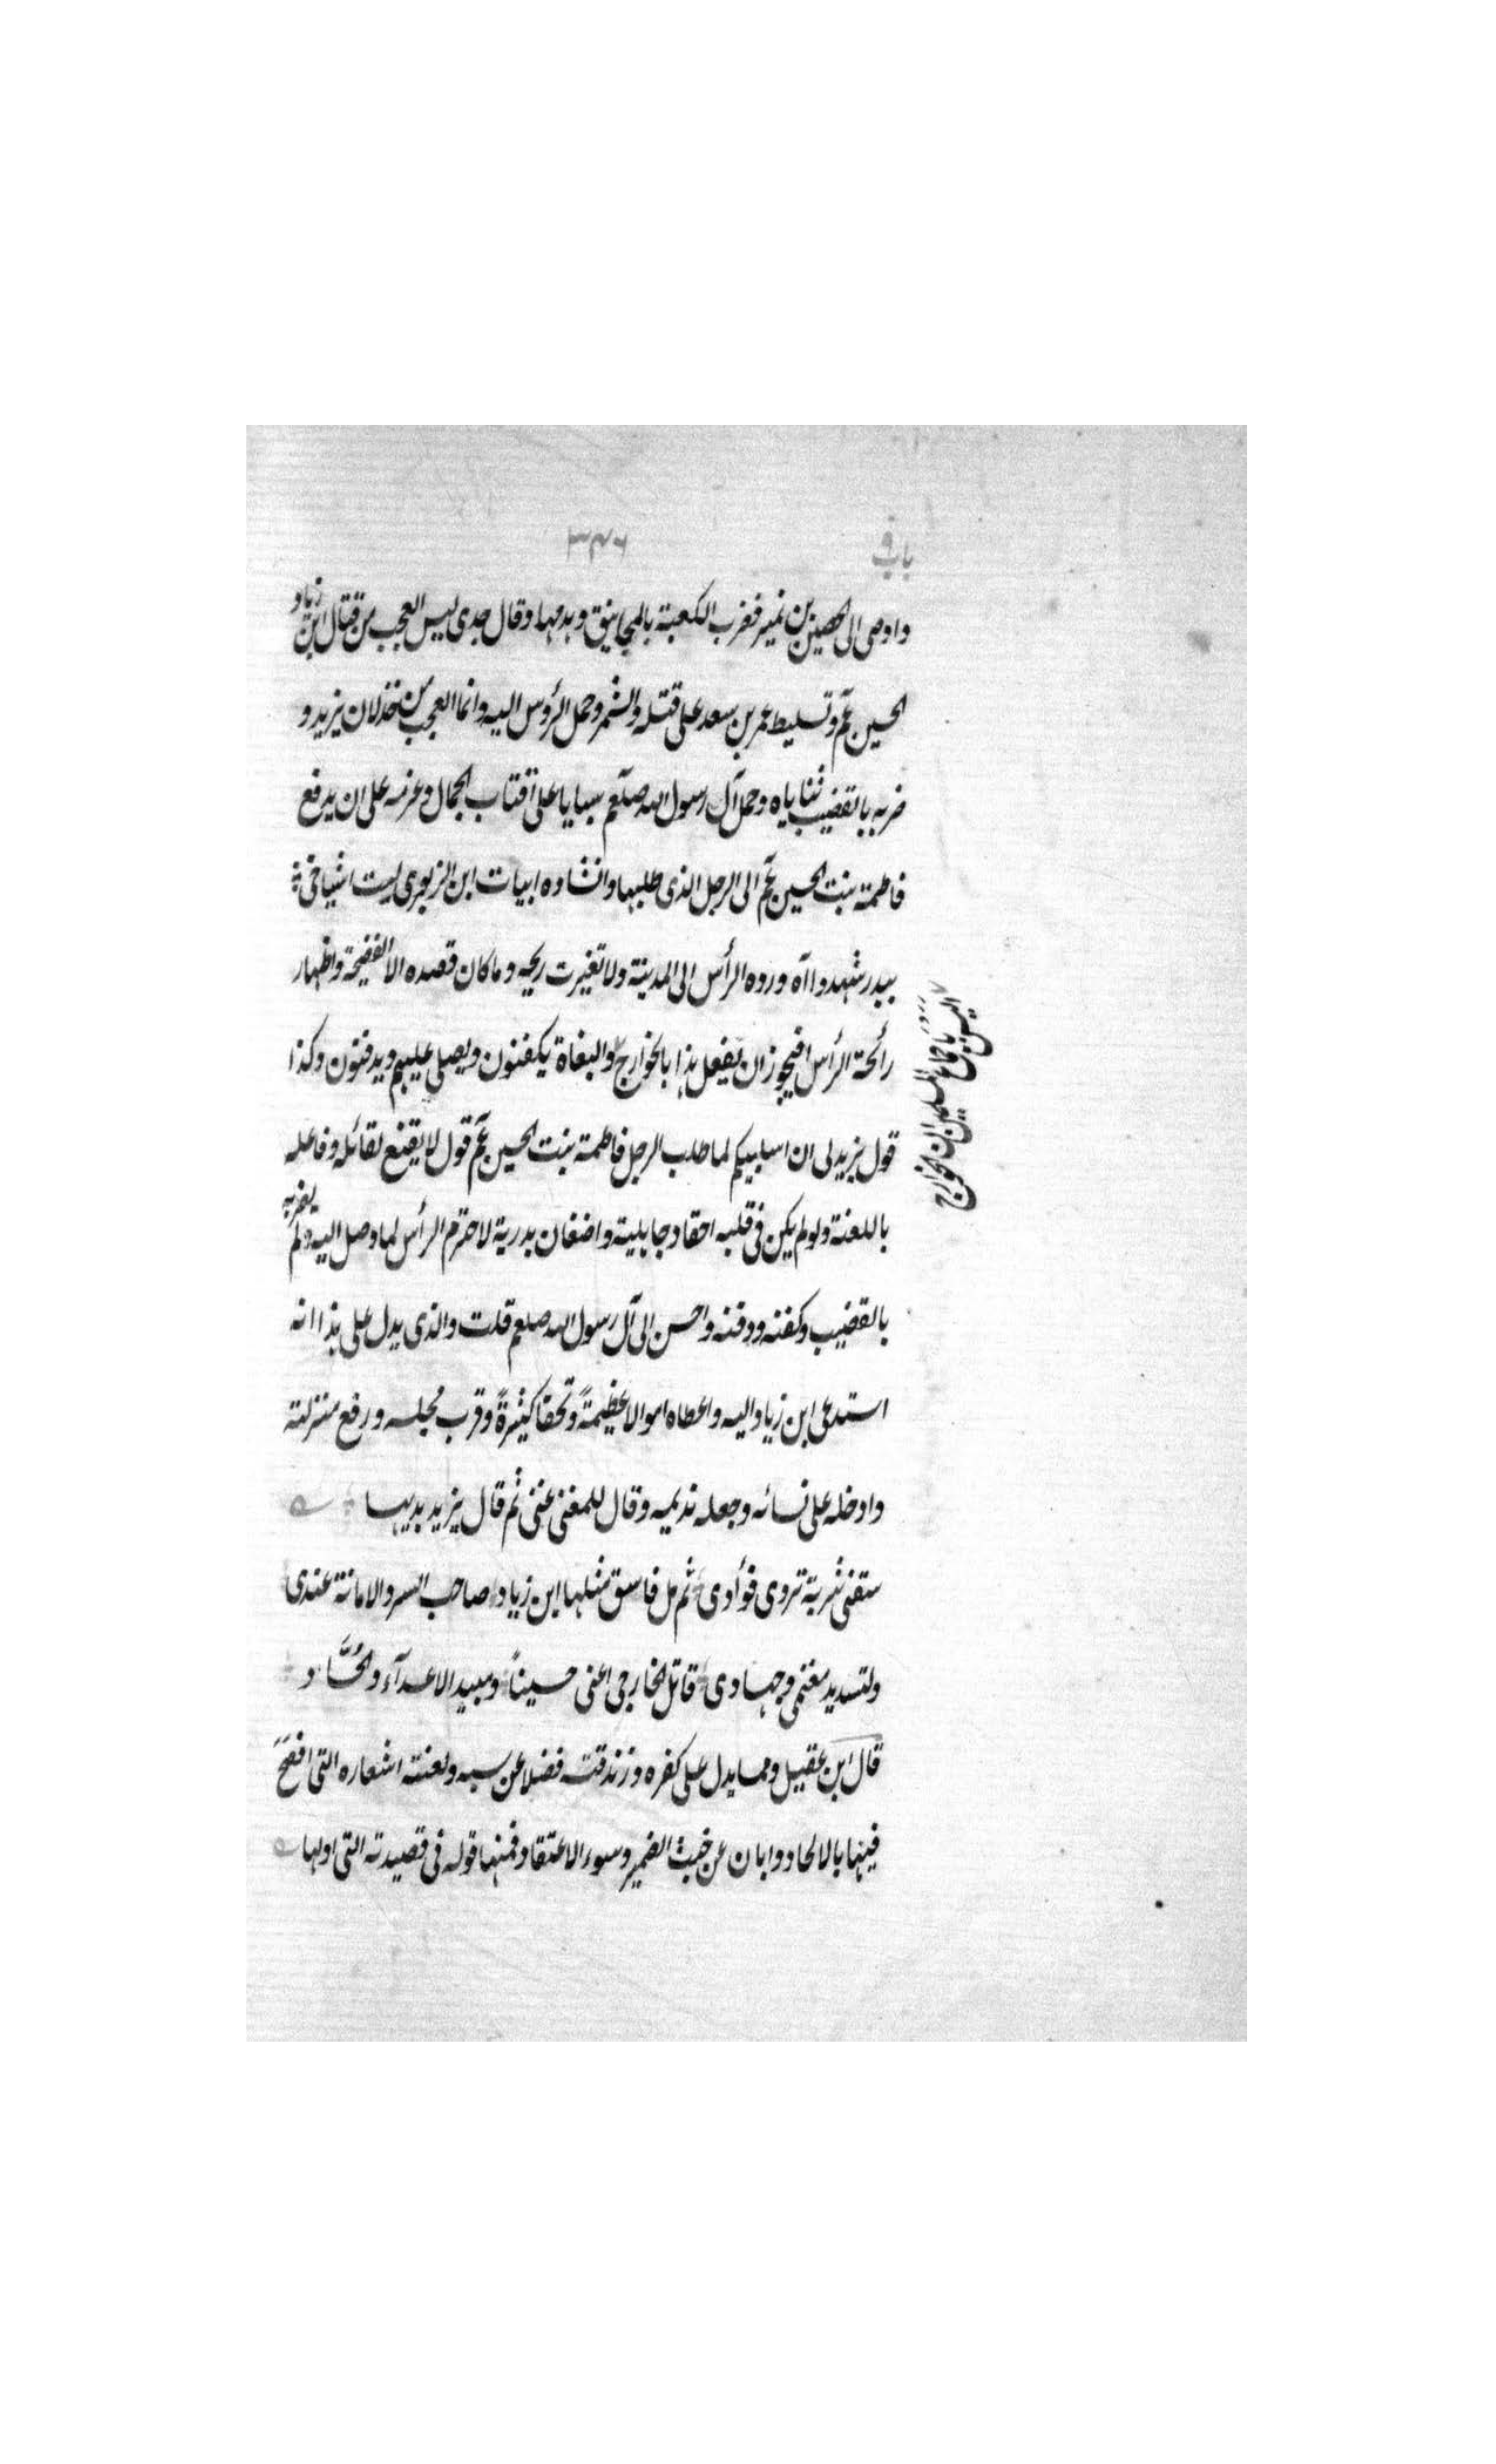 باب ۹
۳۴۶
واوصى الى الحصين بن نمير فضرب الكعبة بالمجانيق وهدمها وقال جدى ليس العجب من قتال ابن زياد
الحسين عم وتسليط عمر بن سعد على قتله والشمر وحمل الرؤس اليه وانما العجب من خذلان يزيد و
ضربه بالقضيب ثناياه وحمل آل رسول الله صلعم سبايا على اقتاب الجمال وعزمه على ان يدفع
فاطمة بنت الحسين عم الى الرجل الذى طلبها وانشاده ابيات ابن الزبعرى ليت اشياخى
ببدر شهدوا آه ورده الرأس الى المدينة ولا تغيرت ريحه وما كان قصده الا الفضيحة واظهار
رائحة الرأس افيجوز ان يفعل هذا بالخوارج والبغاة يكفنون ويصلى عليهم ويدفنون وكذا
اليس باجماع المسلمين ان الخوارج
قول يزيد لى ان اسابيكم لما طلب الرجل فاطمة بنت الحسين عم قول لا يقنع لقائله وفاعله
باللعنة ولو لم يكن فى قلبه احقاد جاهلية واضغان بدرية لاحترم الرأس لما وصل اليه ولم يضربه
بالقضيب وكفنه ودفنه واحسن الى آل رسول الله صلعم قلت والذى يدل على هذا انه
استدعى ابن زياد اليه واعطاه اموالا عظيمةً وتحفا كثيرةً وقرب مجلسه ورفع منزلته
وادخله على نسائه وجعله نديمه وقال للمغنى غنى ثم قال يزيد بديها
سقنى شربة تروى فؤادى ثم مل فاسق مثلها ابن زياد صاحب السر والامانة عندى
ولتسديد مغنمى وجهادى قاتل الخارجى اعنى حسيناً ومبيد الاعدآء والحُسَّاد
قال ابن عقيل ومما يدل على كفره وزندقته فضلا عن سبه ولعنته اشعاره التى افصح
فيها بالالحاد وابان عن خبث الضمير وسوء الاعتقاد فمنها قوله فى قصيدته التى اولها